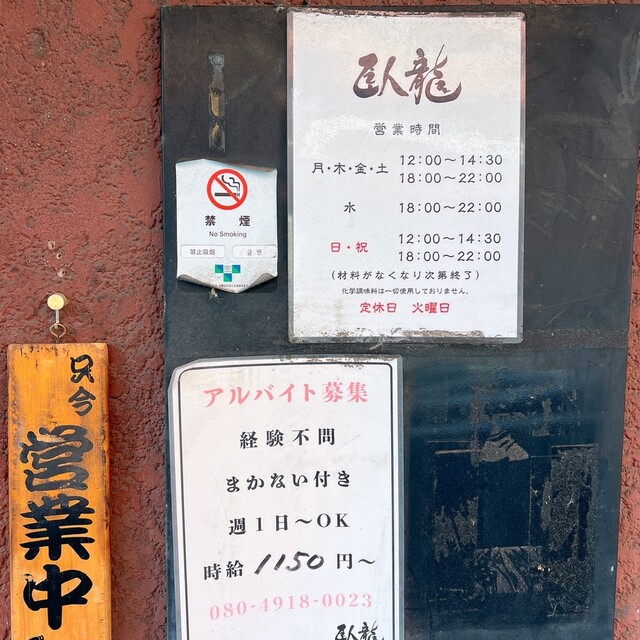 臥龍
営業時間
月・木・金・土 12:00～14:30
18:00～22:00
水 18:00～22:00
日・祝 12:00～14:30
18:00～22:00
(材料がなくなり次第終了)
化学調味料は一切使用しておりません。
定休日 火曜日
禁煙
No Smoking
禁止吸烟 금연
只今
営業中
アルバイト募集
経験不問
まかない付き
週1日～OK
時給 1150円～
080-4918-0023
臥龍